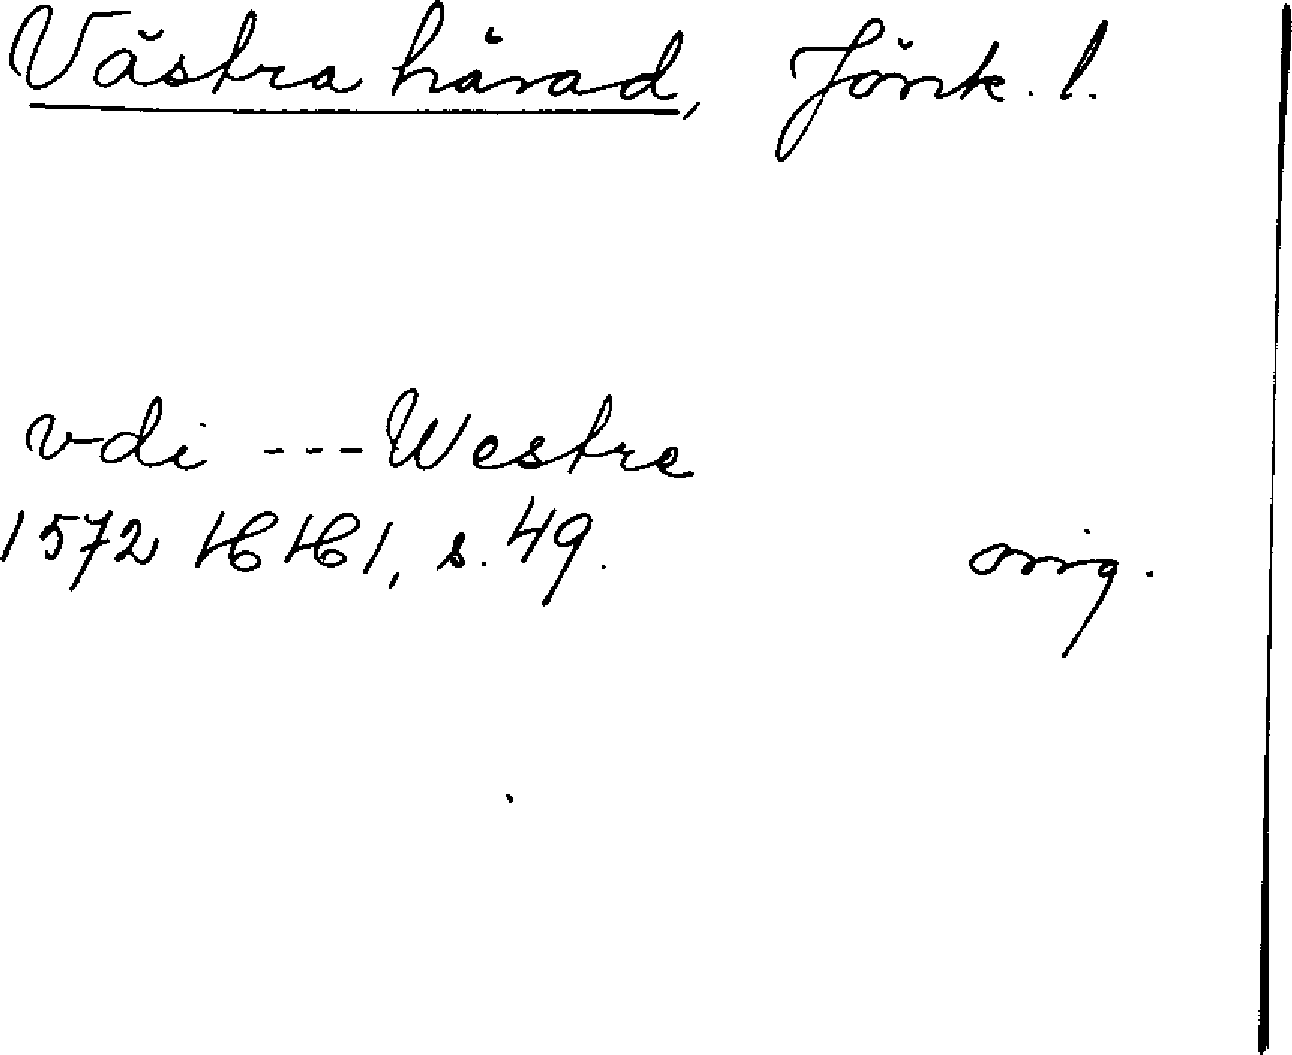 Västra härad, Jönk. l.
vdi --- Westre
1572 HH1, s. 49. orig.